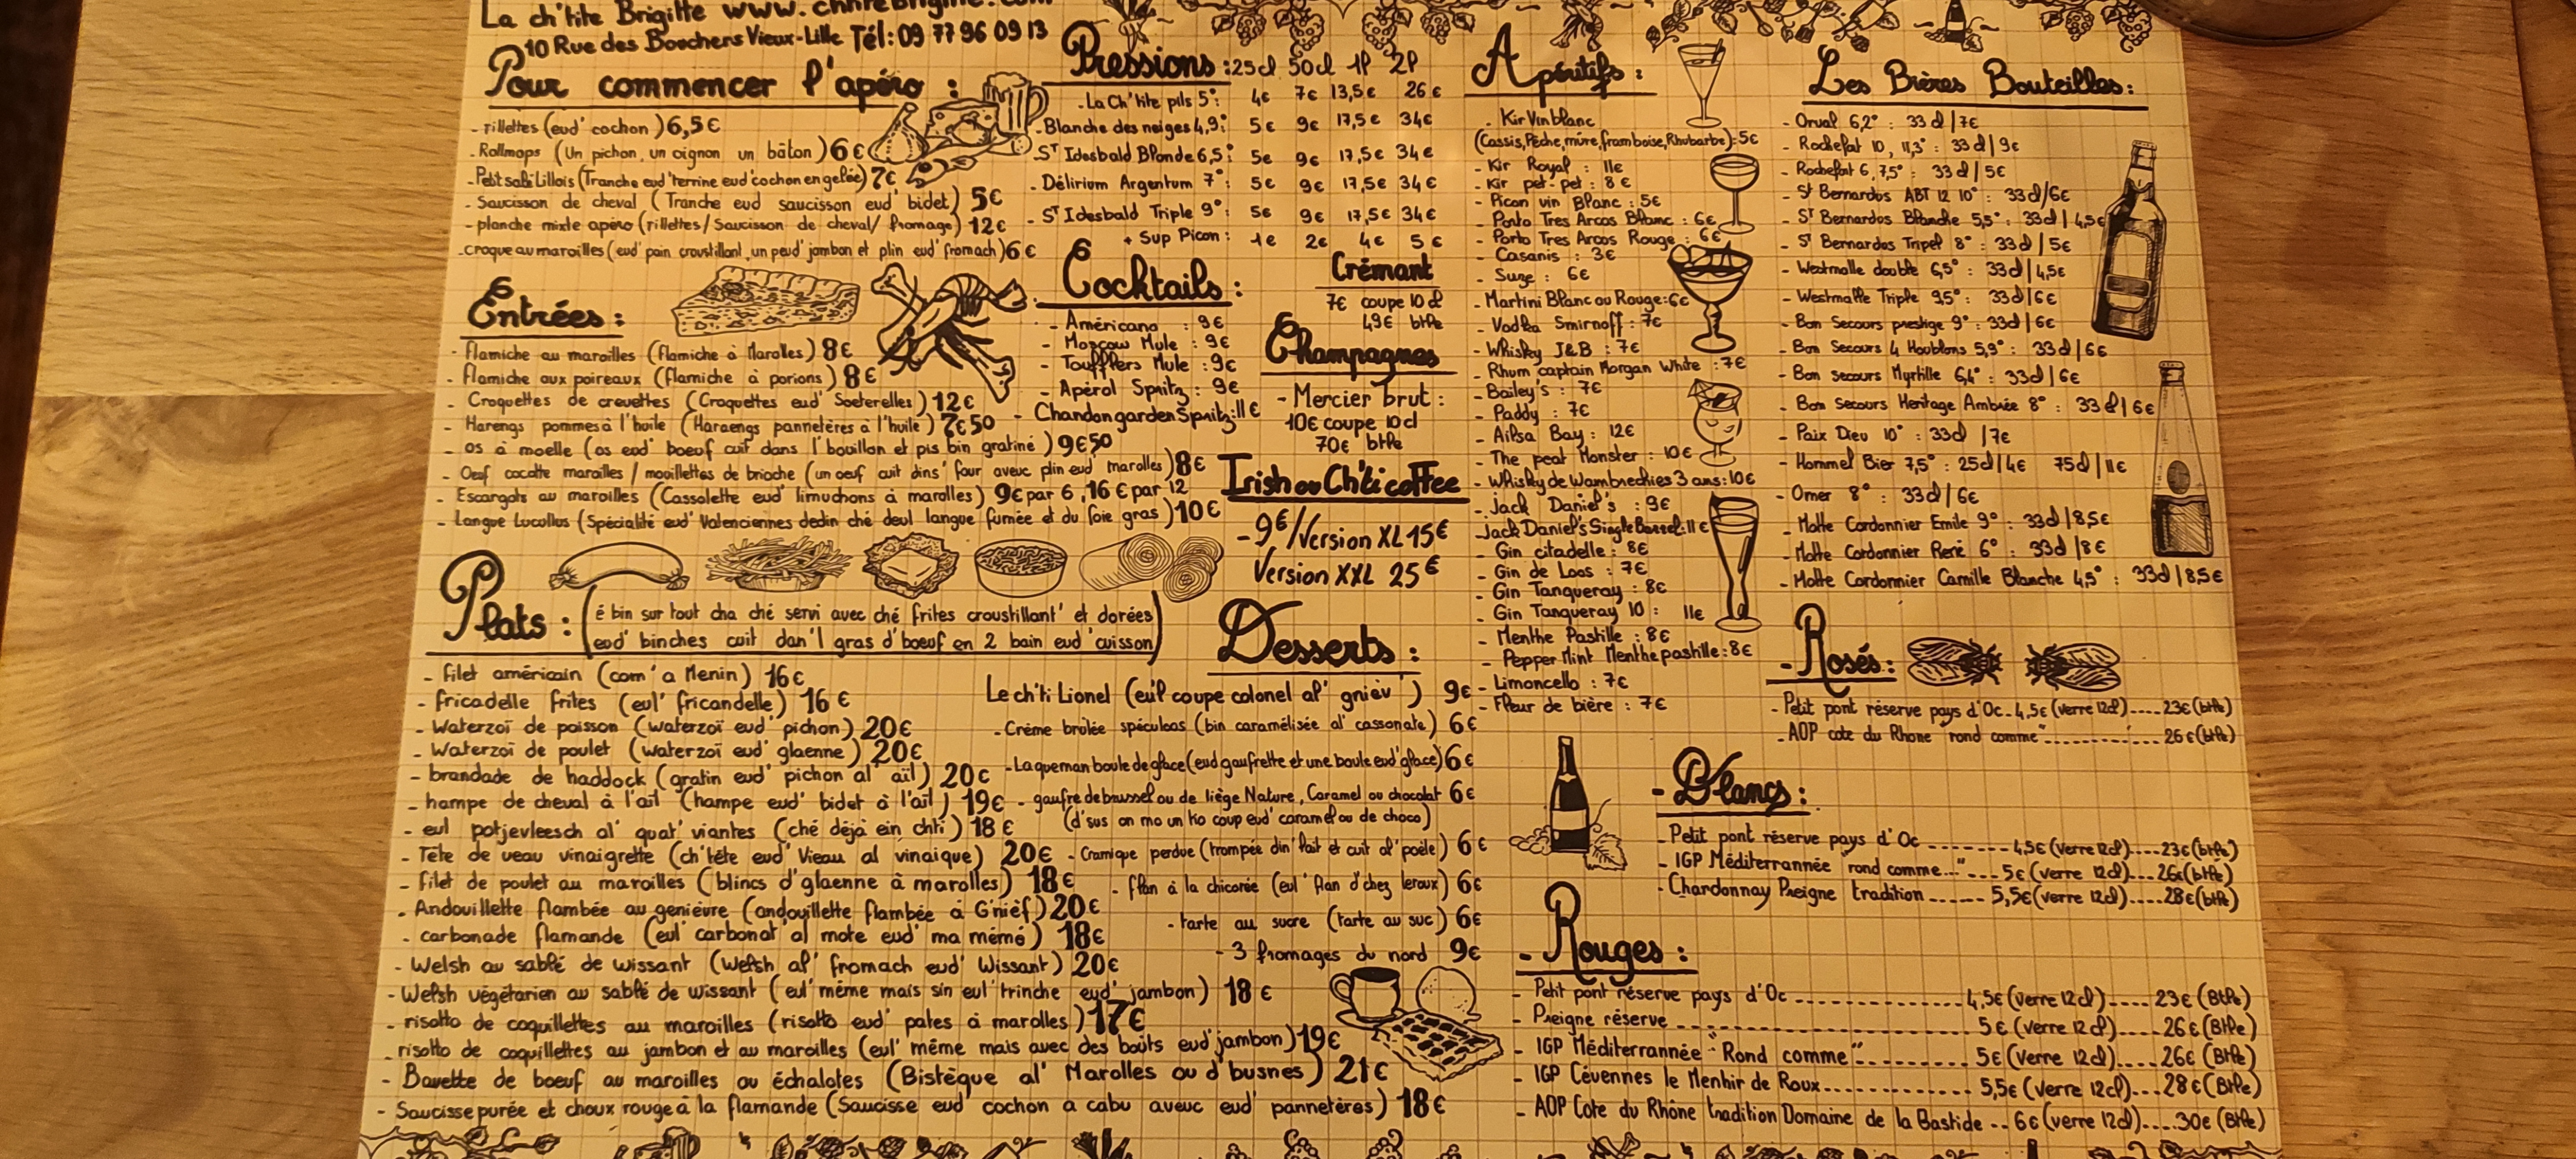 La ch'tite Brigitte
10 Rue des Bouchers Vieux-Lille Tél: 09 77 96 09 13
Pour commencer l'apéro :
- rillettes (eud' cochon) 6,5€
- Rollmops (Un pichon, un oignon un bâton) 6€
- Petit salé Lillois (Tranche eud' terrine eud' cochon en gelée) 7€
- Saucisson de cheval (Tranche eud saucisson eud' bidet) 5€
- planche mixte apéro (rillettes/Saucisson de cheval/ fromage) 12€
- croque au maroilles (eud' pain croustillant, un peud' jambon et plin eud' fromach) 6€
Entrées :
- flamiche au maroilles (flamiche à Marolles) 8€
- flamiche aux poireaux (flamiche à porions) 8€
- Croquettes de crevettes (Croquettes eud' Soeterelles) 12€
- Harengs pommes à l'huile (Haraengs pannetères à l'huile) 7€50
- os à moelle (os eud' boeuf cuit dans l'bouillon et pis bin gratiné) 9€50
- Oeuf cocotte maroilles / mouillettes de brioche (un oeuf cuit dins' four aveuc plin eud' marolles) 8€
- Escargots au maroilles (Cassolette eud' limuchons à marolles) 9€ par 6, 16€ par 12
- Langue Lucullus (Spécialité eud' Valenciennes dedin ché deul langue fumée et du foie gras) 10€
Plats : (é bin sur tout cha ché servi avec ché frites croustillant' et dorées
eud' binches cuit dan'l gras d'boeuf en 2 bain eud' cuisson)
- filet américain (com' a Menin) 16€
- fricadelle frites (eul' fricandelle) 16€
- Waterzoï de poisson (waterzoï eud' pichon) 20€
- Waterzoï de poulet (waterzoï eud' glaenne) 20€
- brandade de haddock (gratin eud' pichon al' aïl) 20€
- hampe de cheval à l'aïl (hampe eud' bidet à l'aïl) 19€
- eul potjevleesch al' quat' viantes (ché déjà ein chti) 18€
- Tête de veau vinaigrette (ch'tête eud' Vieau al vinaique) 20€
- filet de poulet au maroilles (blincs d'glaenne à marolles) 18€
- Andouillette flambée au genièvre (andouillette flambée à G'nièf) 20€
- carbonade flamande (eul' carbonat' al mote eud' ma mémé) 18€
- Welsh au sablé de wissant (Welsh al' fromach eud' Wissant) 20€
- Welsh végétarien au sablé de wissant (eul' même mais sin eul' trinche eud' jambon) 18€
- risotto de coquillettes au maroilles (risotto eud' pates à marolles) 17€
- risotto de coquillettes au jambon et au maroilles (eul' même mais avec des boûts eud' jambon) 19€
- Bavette de boeuf au maroilles ou échalotes (Bistèque al' Marolles ou d'busnes) 21€
- Saucisse purée et choux rouge à la flamande (Saucisse eud' cochon a cabu aveuc eud' pannetères) 18€
Pressions : 25cl 50cl 1l 2l
- La Ch'tite pils 5° : 4€ 7€ 13,5€ 26€
- Blanche des neiges 4,9° : 5€ 9€ 17,5€ 34€
- ST Idesbald Blonde 6,5° : 5€ 9€ 17,5€ 34€
- Délirium Argentum 7° : 5€ 9€ 17,5€ 34€
- ST Idesbald Triple 9° : 5€ 9€ 17,5€ 34€
+ Sup Picon : 1€ 2€ 4€ 5€
Cocktails :
- Américano : 9€
- Moscow Mule : 9€
- Toufflers Mule : 9€
- Apérol Spritz : 9€
- Chandon garden Spritz : 11€
Crémant
7€ coupe 10cl
49€ btlle
Champagnes
- Mercier brut :
10€ coupe 10cl
70€ btlle
Irish ou Ch'ti coffee
- 9€/Version XL 15€
Version XXL 25€
Desserts :
Le ch'ti Lionel (eul' coupe colonel al' gnièv') 9€
- Crème brûlée spéculoos (bin caramélisée al' cassonate) 6€
- Laqueman boule de glace (eud gaufrette et une boule eud' glace) 6€
- gaufre de brussel ou de liège Nature, Caramel ou chocolat 6€
(d'sus on mo un tio coup eud' caramel ou de choco)
- Cramique perdue (trompée din' lait et cuit al' poële) 6€
- flan à la chicorée (eul' flan d'chez leroux) 6€
- tarte au sucre (tarte au suc) 6€
- 3 fromages du nord 9€
Apéritifs :
- Kir Vin blanc
(Cassis, Pêche, mûre, framboise, Rhubarbe) : 5€
- Kir Royal : 11€
- Kir pet-pet : 8€
- Picon vin Blanc : 5€
- Porto Tres Arcos Blanc : 6€
- Porto Tres Arcos Rouge : 6€
- Casanis : 3€
- Suze : 6€
- Martini Blanc ou Rouge : 6€
- Vodka Smirnoff : 7€
- Whisky J&B : 7€
- Rhum captain Morgan White : 7€
- Bailey's : 7€
- Paddy : 7€
- Ailsa Bay : 12€
- The peat Monster : 10€
- Whisky de Wambrechies 3 ans : 10€
- Jack Daniel's : 9€
- Jack Daniel's Single Barrel : 11€
- Gin citadelle : 8€
- Gin de Loos : 7€
- Gin Tanqueray : 8€
- Gin Tanqueray 10 : 11€
- Menthe Pastille : 8€
- Pepper Mint Menthe pastille : 8€
- Limoncello : 7€
- Fleur de bière : 7€
Les Bières Bouteilles :
- Orval 6,2° : 33cl | 7€
- Rochefort 10, 11,3° : 33cl | 9€
- Rochefort 6, 7,5° : 33cl | 5€
- St Bernardus ABT 12 10° : 33cl | 6€
- ST Bernardus Blanche 5,5° : 33cl | 4,5€
- ST Bernardus Tripel 8° : 33cl | 5€
- Westmalle double 6,5° : 33cl | 4,5€
- Westmalle Triple 9,5° : 33cl | 6€
- Bon Secours prestige 9° : 33cl | 6€
- Bon Secours 4 Houblons 5,9° : 33cl | 6€
- Bon secours Myrtille 6,4° : 33cl | 6€
- Bon Secours Heritage Ambrée 8° : 33cl | 6€
- Paix Dieu 10° : 33cl | 7€
- Hommel Bier 7,5° : 25cl | 4€ 75cl | 11€
- Omer 8° : 33cl | 6€
- Motte Cordonnier Emile 9° : 33cl | 8,5€
- Motte Cordonnier René 6° : 33cl | 8€
- Motte Cordonnier Camille Blanche 4,5° : 33cl | 8,5€
- Rosés :
- Petit pont réserve pays d'Oc - 4,5€ (verre 12cl) .... 23€ (btlle)
- AOP cote du Rhone "rond comme" .......... 26€ (btlle)
- Blancs :
- Petit pont réserve pays d'Oc ........ 4,5€ (verre 12cl) .... 23€ (btlle)
- IGP Méditerrannée "rond comme..." --- 5€ (verre 12cl) .... 26€ (btlle)
- Chardonnay Preigne tradition ...... 5,5€ (verre 12cl) .... 28€ (btlle)
- Rouges :
- Petit pont réserve pays d'Oc .................. 4,5€ (verre 12cl) .... 23€ (Btlle)
- Preigne réserve .................. 5€ (verre 12cl) .... 26€ (Btlle)
- IGP Méditerrannée "Rond comme" .......... 5€ (verre 12cl) .... 26€ (Btlle)
- IGP Cévennes le Menhir de Roux .............. 5,5€ (verre 12cl) .... 28€ (Btlle)
- AOP Cote du Rhône tradition Domaine de la Bastide .. 6€ (verre 12cl) .... 30€ (Btlle)